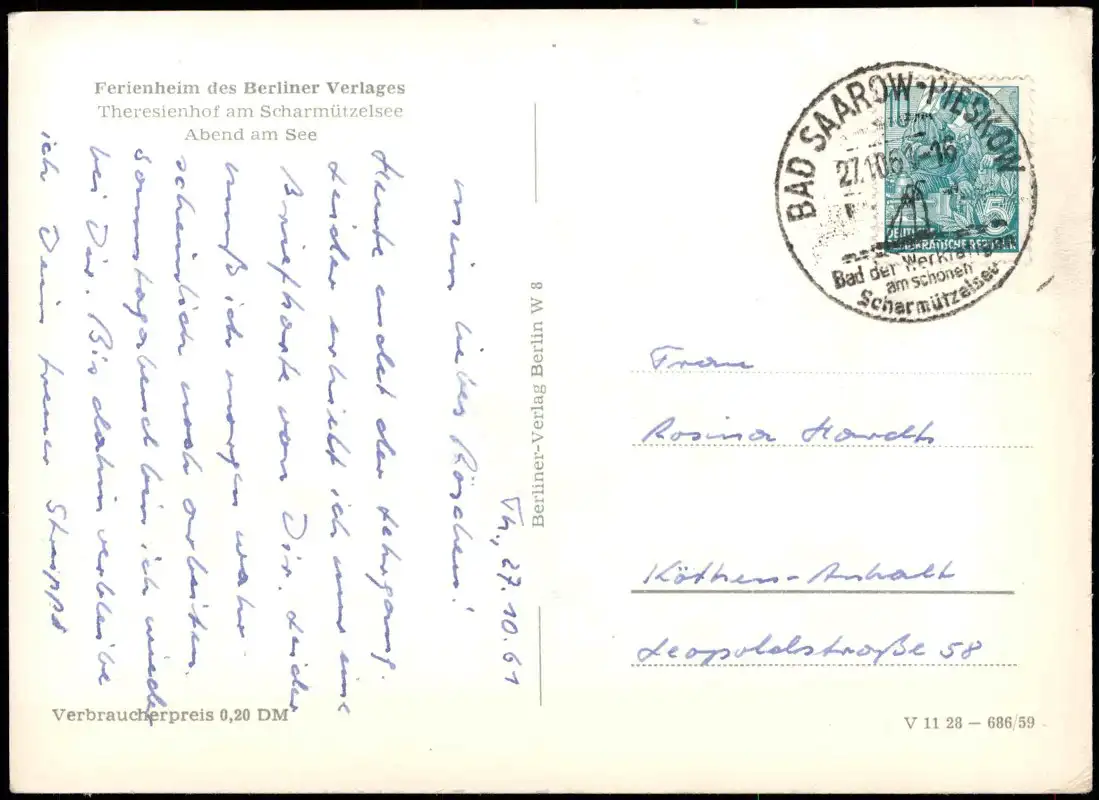 Ferienheim des Berliner Verlages
Theresienhof am Scharmützelsee
Abend am See
Th., 27.10.61
mein liebes Röschen!
Heute endet der Lehrgang.
Leider erhielt ich nur eine
Briefkarte von Dir. Leider
muß ich morgen wahr-
scheinlich noch arbeiten.
Sonnabend bin ich wieder
bei Dir. Bis dahin verbleibe
ich Dein treuer
Verbraucherpreis 0,20 DM
Berliner-Verlag Berlin W 8
BAD SAAROW-PIESKOW
27.10.61-16
Bad der Werktätigen
am schönen
Scharmützelsee
10
5
DEUTSCHE DEMOKRATISCHE REPUBLIK
Frau
Rosina
Köthen-Anhalt
Leopoldstraße 58
V 11 28 — 686/59